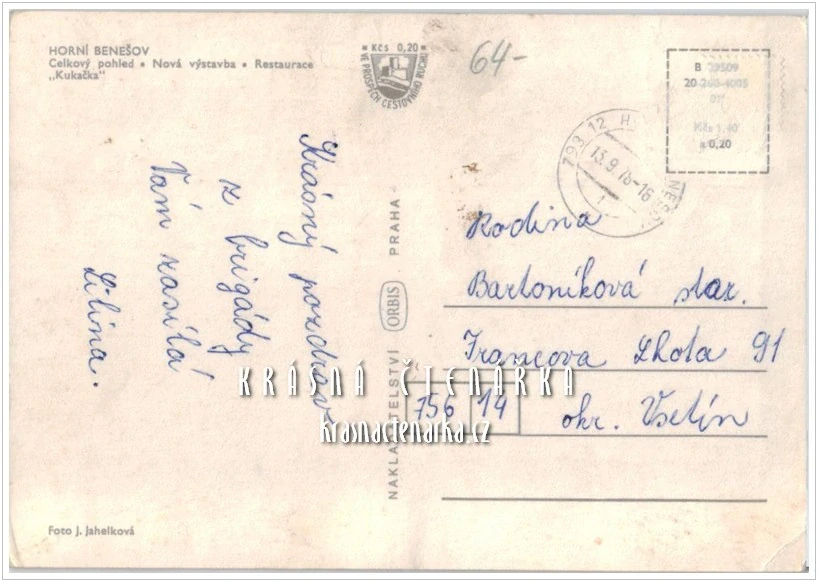 HORNÍ BENEŠOV
Celkový pohled • Nová výstavba • Restaurace
„Kukačka"
Kčs 0,20
VE PROSPĚCH CESTOVNÍHO RUCHU
64-
B 29509
20-260-4005
07
Kčs 1,40
a 0,20
793 12 H
13.9.76-16
NEŠOV
1
Krásný pozdrav
z brigády
Vám zasílá
Lilina.
NAKLADATELSTVÍ ORBIS PRAHA
Rodina
Bartoníková star.
Francova Lhota 91
756 14 okr. Vsetín
KRÁSNÁ ČTENÁRKA
krasnactenarka.cz
Foto J. Jahelková